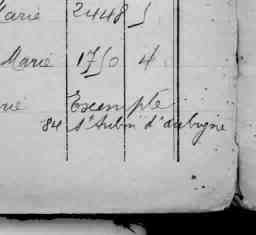 Marie 2448 5
Marie 1750 4
Exempte
84 St Aubin d'aubigné